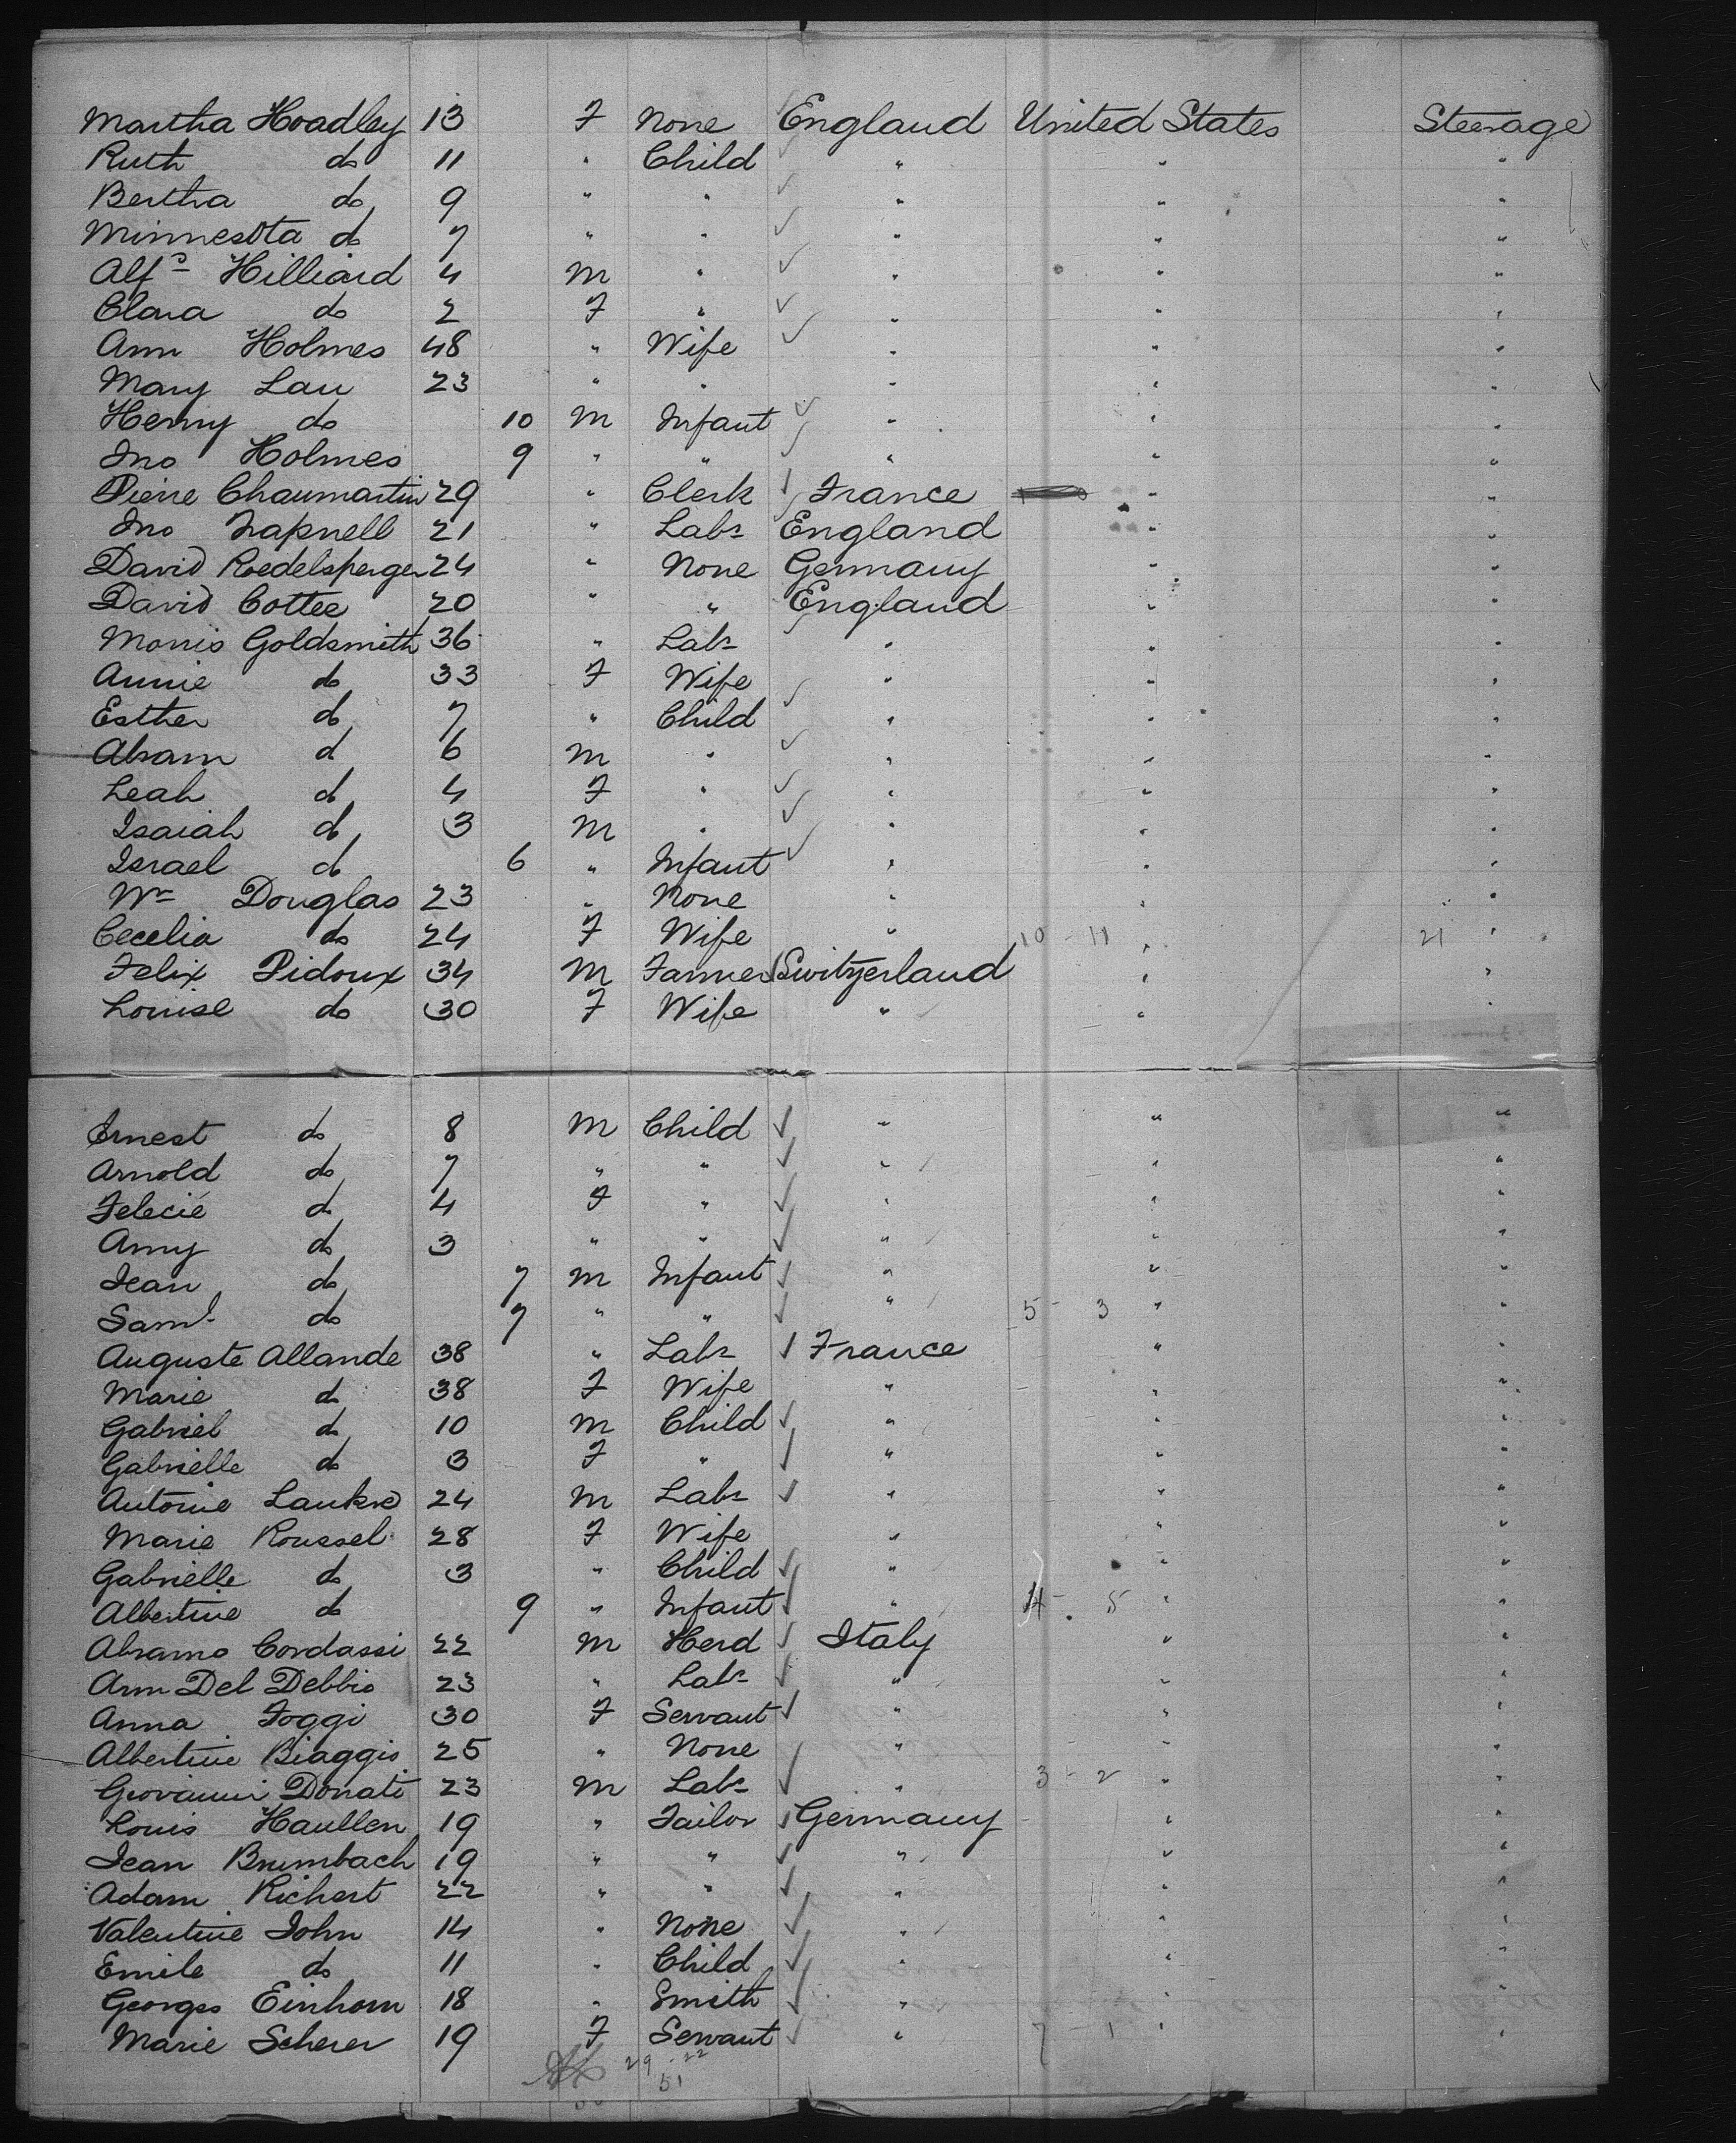 Martha Hoadley 13 F None England United States Steerage
Ruth do 11 " Child " " "
Bertha do 9 " " " " "
Minnesota do 7 " " " " "
Alfd Hilliard 4 M " " " "
Clara do 2 F " " " "
Ann Holmes 48 " Wife " " "
Mary Lau 23 " " " " "
Henry do 10 M Infant " " "
Jno Holmes 9 " " " " "
Pierre Chaumartin 29 " Clerk France " "
Jno Trapnell 21 " Labr England " "
David Roedelsperger 24 " None Germany " "
David Cottee 20 " " England " "
Morris Goldsmith 36 " Labr " " "
Annie do 33 F Wife " " "
Esther do 7 " Child " " "
Abram do 6 M " " " "
Leah do 4 F " " " "
Isaiah do 3 M " " " "
Israel do 6 " Infant " " "
Wm Douglas 23 " None " " "
Cecelia do 24 F Wife " 10 - 11 " 21 "
Felix Pidoux 34 M Farmer Switzerland " "
Louise do 30 F Wife " " "
Ernest do 8 M Child " " "
Arnold do 7 " " " " "
Felecie do 4 F " " " "
Amy do 3 " " " " "
Jean do 7 M Infant " " "
Saml do 7 " " " 5 - 3 " "
Auguste Allande 38 " Labr France " "
Marie do 38 F Wife " " "
Gabriel do 10 M Child " " "
Gabrielle do 3 F " " " "
Antoine 24 M Labr " " "
Marie Roussel 28 F Wife " " "
Gabrielle do 3 " Child " " "
Albertine do 9 " Infant " 4 - 5 " "
Abramo Cordassi 22 M Herd Italy " "
Ann Del Debbio 23 " Labr " " "
Anna Foggi 30 F Servant " " "
Albertine Biaggio 25 " None " " "
Giovanni Donati 23 M Labr " 3 - 2 " "
Louis Haullen 19 " Tailor Germany " "
Jean Brumbach 19 " " " " "
Adam Richert 22 " " " " "
Valentine John 14 " None " " "
Emile do 11 " Child " " "
Georges Einhorn 18 " Smith " " "
Marie Scherer 19 F Servant " 7 - 1 " "
29 - 22
51